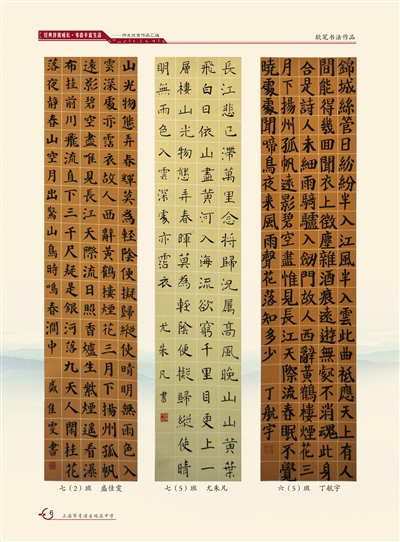 经典伴我成长·书韵丰盈生活
——师生优秀作品汇编
软笔书法作品
錦城絲管日紛紛半入江風半入雲此曲祇應天上有人
間能得幾回聞衣上徵塵雜酒痕遠遊無處不消魂此身
合是詩人未細雨騎驢入劒門故人西辭黃鶴樓煙花三
月下揚州孤帆遠影碧空盡惟見長江天際流春眠不覺
曉處處聞啼鳥夜来風雨聲花落知多少 丁航宇
長江悲已滯萬里念將歸況屬高風晚山山黃葉
飛白日依山盡黃河入海流欲窮千里目更上一
層樓山光物態弄春暉莫為輕陰便擬歸縱使晴
明無雨色入雲深處亦霑衣 尤朱凡書
山光物態弄春輝莫為輕陰便擬歸縱使晴明無雨色入
雲深處亦霑衣故人西辭黃鶴樓煙花三月下揚州孤帆
遠影碧空盡惟見長江天際流日照香爐生紫煙遥看瀑
布挂前川飛流直下三千尺疑是銀河落九天人閒桂花
落夜静春山空月出驚山鳥時鳴春澗中 盛佳雯書
七(2)班 盛佳雯
七(5)班 尤朱凡
六(5)班 丁航宇
6
上海市青浦区珠溪中学